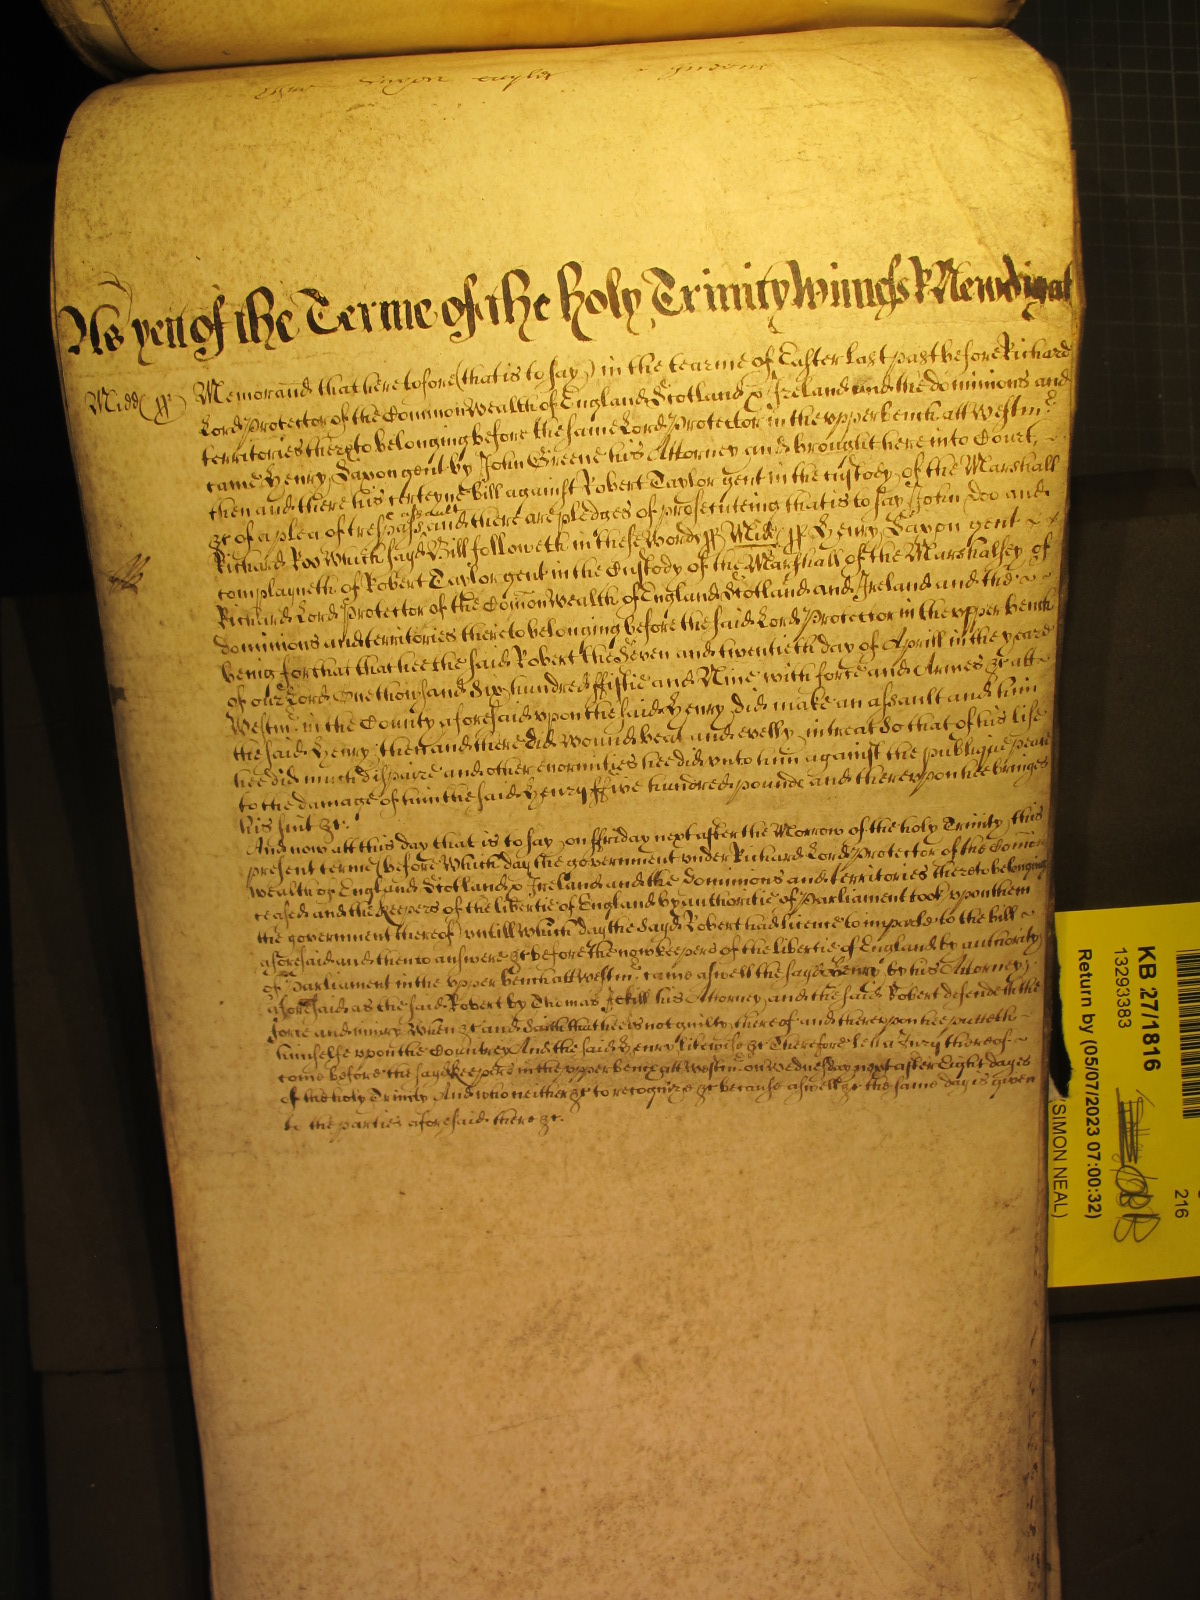 Saxon Taylor
As yett of the Terme of the holy Trinity Wittnes R Newdigat
Midd ss Memorand that heretofore (that is to say) in the tearme of Easter last past before Richard
Lord Protector of the Common Wealth of England Scotland & Ireland and the dominions and
territories thereto belonging before the same Lord Protector in the upper bench att Westmr
came Henry Saxon gent by John Greene his Attorney and brought here into Court
then and there his certeyne bill against Robert Taylor gent in the custody of the Marshall
&c of a plea of trespass assault and there are pledges of prosecuteing that is to say John Doo and
Richard Roo Which sayd Bill followeth in these words ss Midd ss Henry Saxon gent
complayneth of Robert Taylor gent in the Custody of the Marshall of the Marshalsey of
Richard Lord Protector of the Com̄on Wealth of England Scotland and Ireland and the
dominions and territories thereto belonging before the said Lord Protector in the upper bench
being for that that hee the said Robert the Seven and twentieth day of Aprill in the yeare
of our Lord One thowsand Six hundred ffiftie and Nine with force and Armes &c att
Westmr in the County aforesaid upon the said Henry did make an assault and him
the said Henry then and there did wound beat and evelly intreat so that of his life
hee did much dispaire and other enormities hee did unto him against the publique peace
to the damage of him the said Henry ffive hundred pounds and thereupon hee bringes
his suit &c.
And now att this day that is to say on ffriday next after the Morrow of the holy Trinity this
present terme (before Which day the government under Richard Lord Protector of the Comon
wealth of England Scotland & Ireland and the dominions and territories thereto belonging
ceased and the Keepers of the libertie of England by authoritie of Parliament took upon them
the government thereof) untill Which day the sayd Robert had licence to imparle to the bill
aforesaid and then to answere &c before the now keepers of the libertie of England by authority
of Parliament in the upper bench att Westmr came aswell the sayd Henry by his Attorney
aforesaid as the said Robert by Thomas Jekill his Attorney and the said Robert defendeth the
force and iniury When &c and saith that hee is not guilty thereof and thereupon hee putteth
himselfe upon the Countrey And the said Henry likewise &c Therefore lett a Jury thereof
come before the sayd keepers in the upper bench att Westmr on Wednesday next after Eight dayes
of the holy Trinity And who neither &c to recognize &c because aswell &c the same day is given
to the parties aforesaid there &c.
KB 27/1816
13293383
216
Return by (05/07/2023 07:00:32)
(SIMON NEAL)